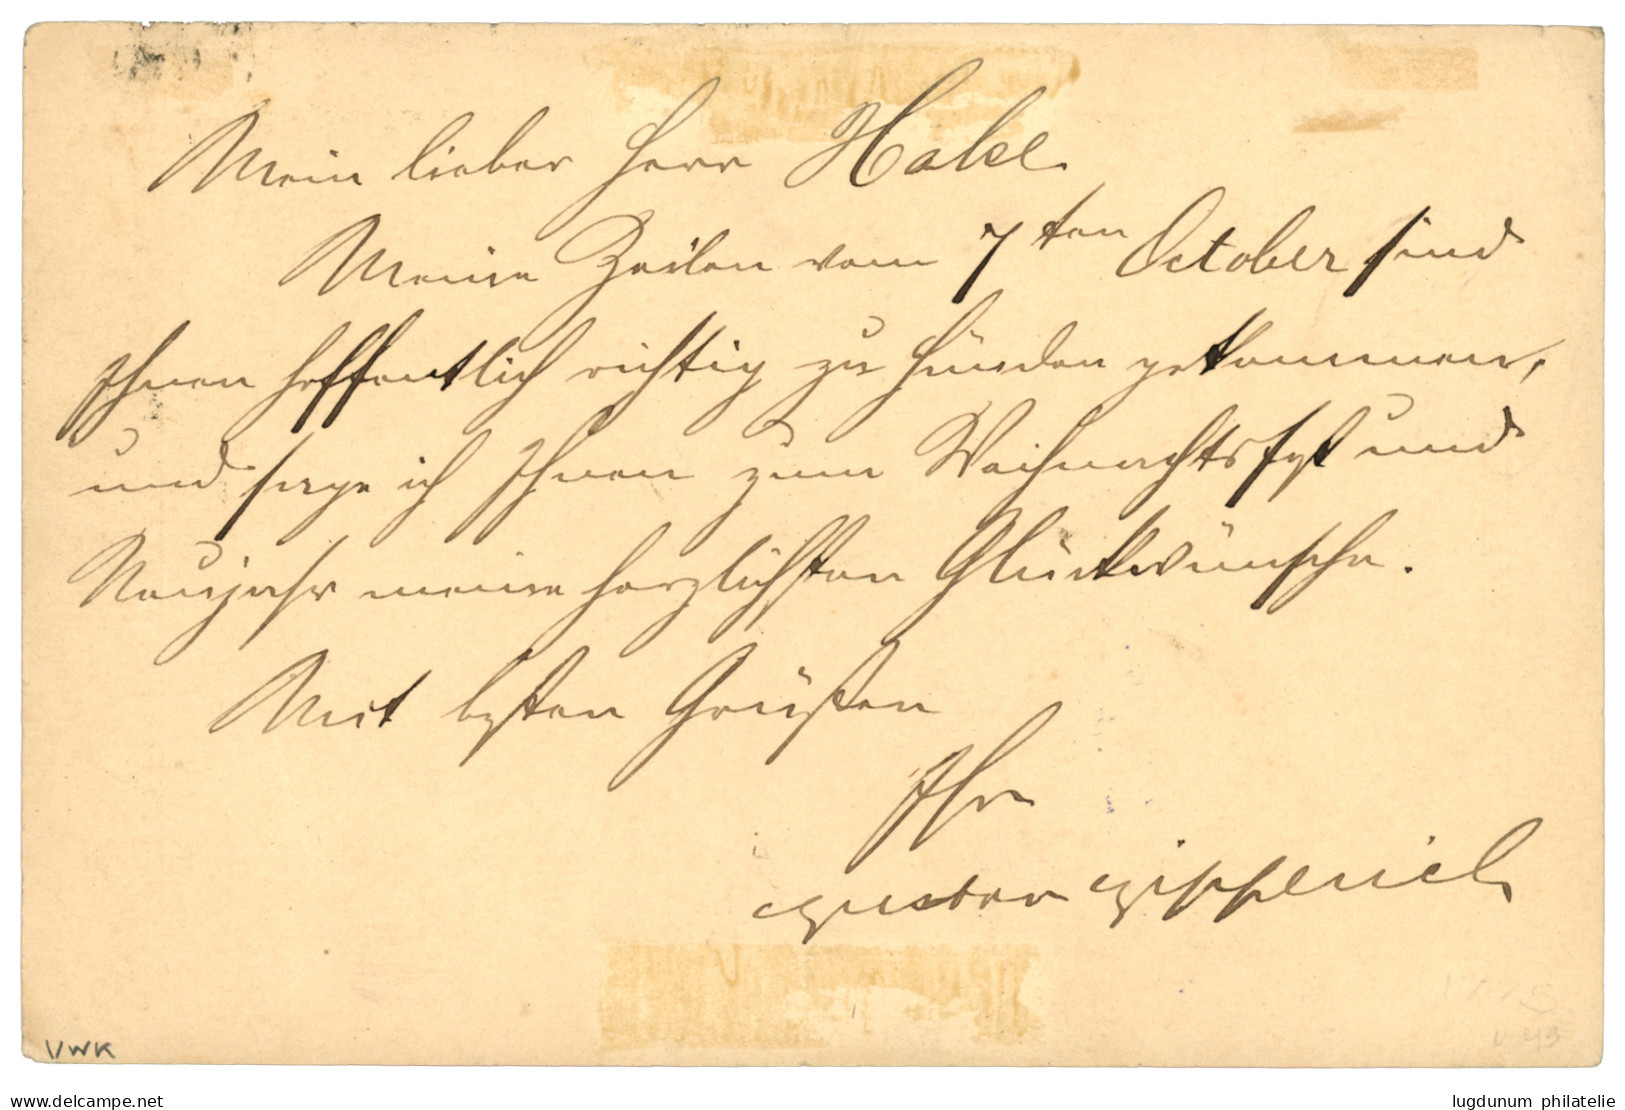 Mein lieber Herr Hakel.
Meine Zeilen vom 7ten October sind
Ihnen hoffentlich richtig zu Händen gekommen,
und sage ich Ihnen zum Weihnachtsfest und
Neujahr meine herzlichsten Glückwünsche.
Mit besten Grüßen
Ihr
Gustav
VWK
delcampe.net
lugdunum philatelie